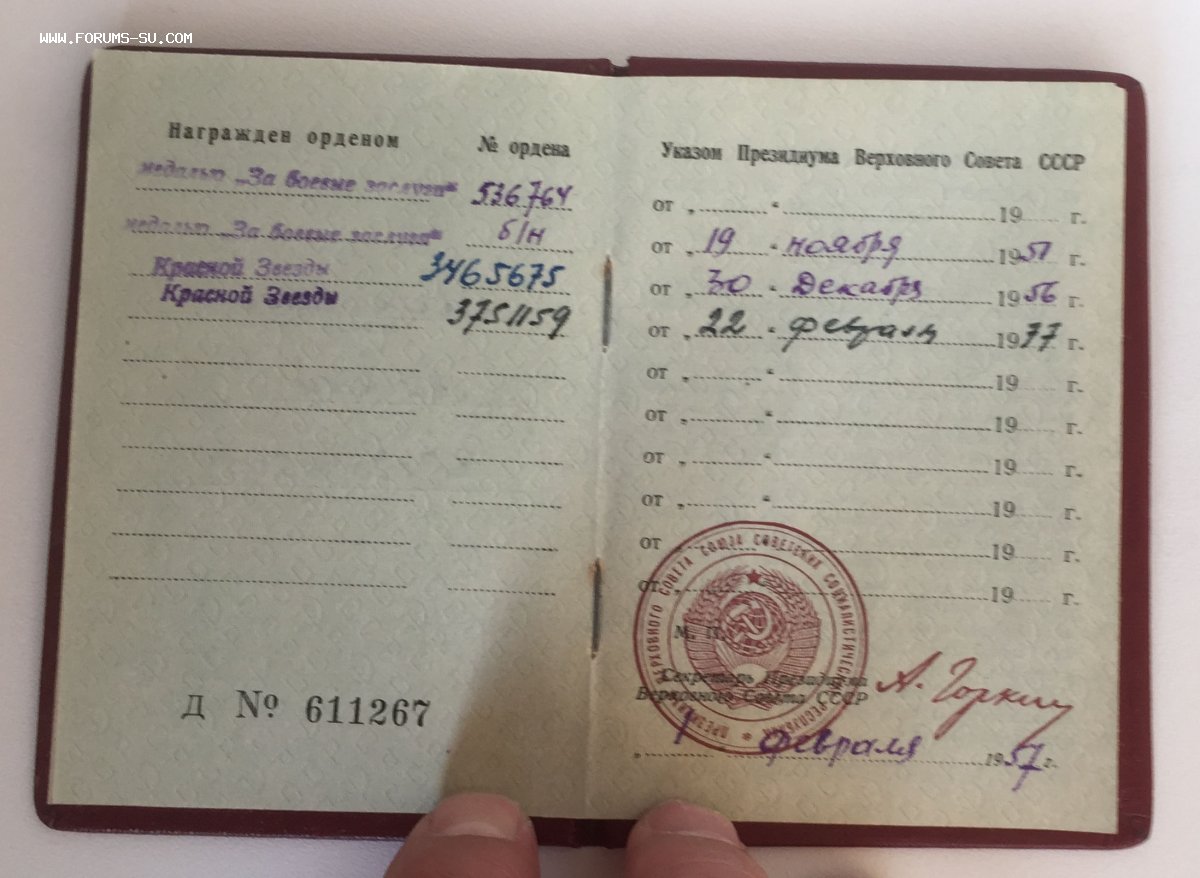 WWW.FORUMS-SU.COM
Награжден орденом № ордена
медалью „За боевые заслуги“ 536764
медалью „За боевые заслуги“ б/н
Красной Звезды 3465675
Красной Звезды 3751159
Д № 611267
Указом Президиума Верховного Совета СССР
от „ “ 19 г.
от „ 19 “ ноября 1951 г.
от „ 30 “ Декабря 1956 г.
от „ 22 “ февраля 1977 г.
от „ “ 19 г.
от „ “ 19 г.
от „ “ 19 г.
от „ “ 19 г.
от „ 19 г.
от „ 19 г.
ПРЕЗИДИУМ ВЕРХОВНОГО СОВЕТА СОЮЗА СОВЕТСКИХ СОЦИАЛИСТИЧЕСКИХ РЕСПУБЛИК
М. П.
Секретарь Президиума
Верховного Совета СССР
А. Горкин
„ 1 февраля 1957 г.